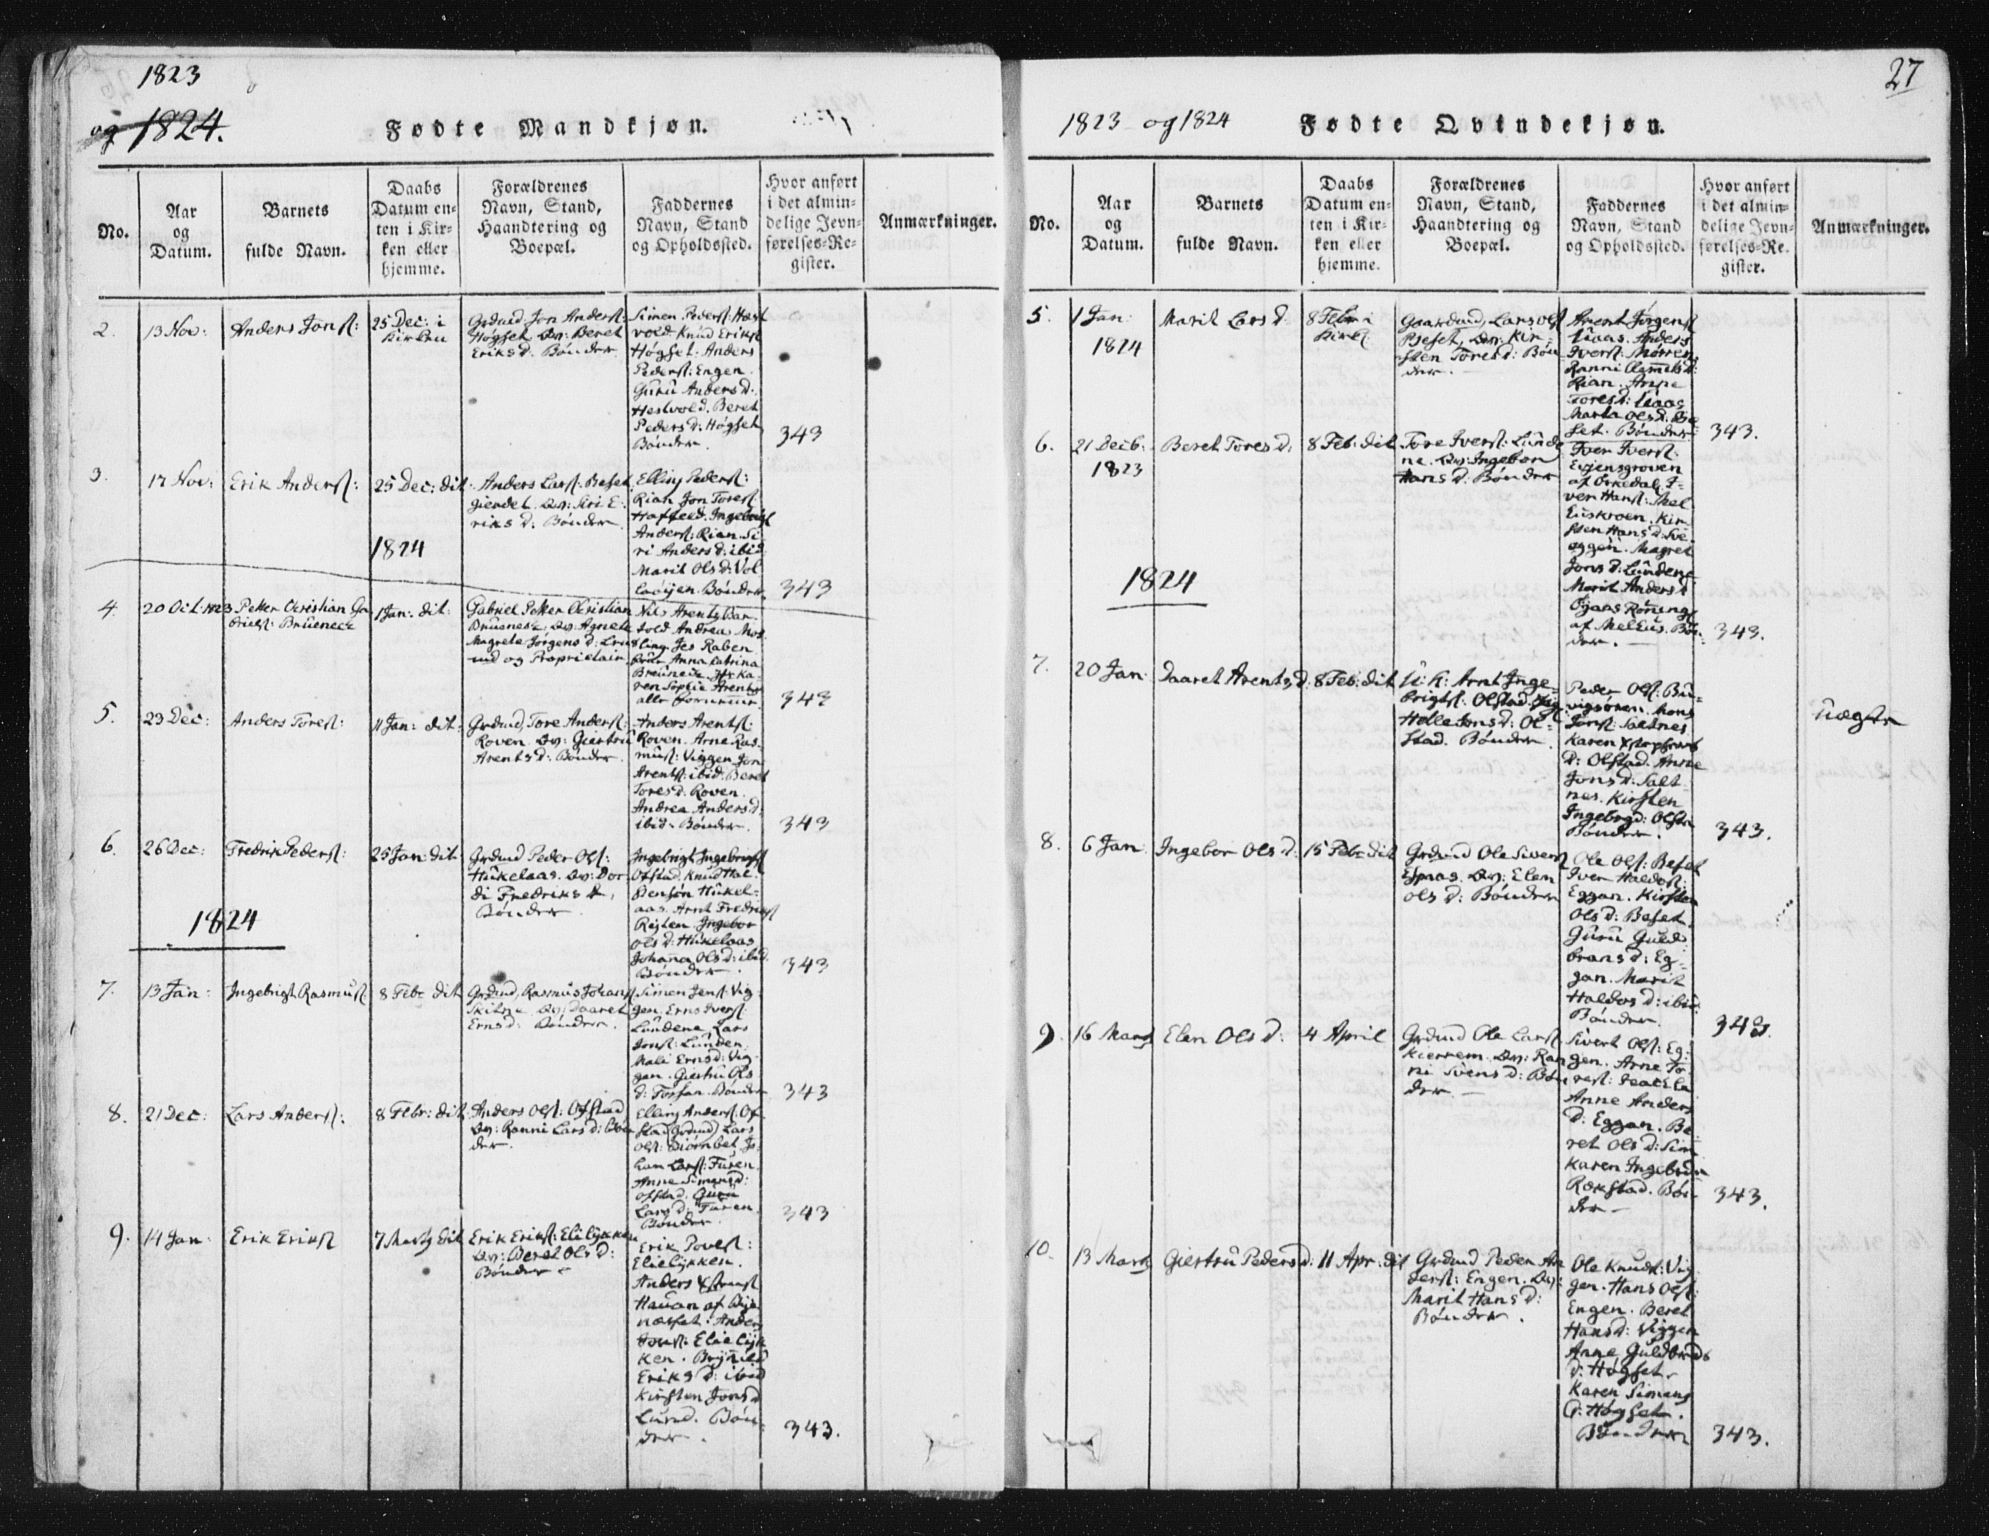 1823
og 1824.
Fødte Mandkjøn.
No.
Aar
og
Datum.
Barnets
fulde Navn.
Daabs
Datum en-
ten i Kir-
ken eller
hjemme.
Forældrenes
Navn, Stand,
Haandtering og
Boepæl.
Faddernes
Navn, Stand
og Opholdssted.
Hvor anført
i det almin-
delige Jevn-
førelses-Re-
gister.
Anmærkninger.
2.
13 Nov:
Anders Jons:
25 Dec: i
Kirken
Grdmd Jon Anders:
Høgset. Qv: Beret
Eriksd. Bønder.
Simen Peders: Hest
vold Knud Eriks
Høgset. Anders
Peders: Engen.
Guru Andersd:
Hestvold. Beret
Pedersd: Høgset
Bønder.
343
3.
17 Nov:
Erik Anders:
25 Dec: dit
Anders Lars: Beset
giendet. Qv: Siri E-
riksd: Bønder
Elling Peders:
Rian Jon Tores:
Hoffeed. Ingebrigt
Anders: Rian. Si
ri Andersd: ibid.
Marit Olsd: Vol
Bønder
343
1824
4
20 Oct: 1823
Peter Christian Ga
briels: Brüenech
1 Jan: dit:
Gabriel Peter Christian
Brüenech, Qv: Agnete
Magrete Jørgensd:
md og Proprietair
Nils Arentz Bar-
told Andrea Mos
ling. Jes Raben
Anna Catrina
Breünech
ren Sophie Arentz
alle
343
5.
23 Dec:
Anders Tores:
11 Jan: dit:
Grdmd, Tore Anders:
Roven Qv: Giertru
Arentsd: Bønder
Anders Arents:
Roven. Arne Ras-
mus: Viggen Jon
Arents: ibid. Beret
Toresd: Roven.
Andrea Andersd:
ibid. Bønder.
343
6.
26 Dec:
Fredrik Peders:
25 Jan dit
Grdmd Peder Ols:
Hukelaas. Qv: Dor-
di Fredriksd,
Bønder
Ingebrigt Ingebrigts
Ofstad. Knud Hal-
Hukel-
aas. Arnt Fredriks
Rejten Ingebor
Olsd: Hukelaas
Johanna Olsd: ibid.
Bønder.
343
1824
7.
13 Jan:
Ingebrigt Rasmus:
8 Febr dit
Grdmd, Rasmus Johans
Qv: Daaret
Ernsd: Bønder.
Simen Jens: Vig-
gen, Erns Ivers:
Lundene Lars
Jons: Lunden.
Mali Ernsd: Vig-
gen. Giertru Ols
d: Bønder
343
8.
21 Dec:
Lars Anders:
8 Febr: dit
Anders Ols: Ofstad
Qv: Ronni Larsd: Bøn
der.
Elling Anders: Of
stad, Grdmd, Lars
Ols: Biørnbet Jo-
han Lars: Furen.
Anne Simensd:
Ofstad. Guru
Larsd: Furen.
Bønder.
343
9.
14 Jan.
Erik Eriks
7 Martz dit
Erik Eriks: Elielykken
Qv: Beret Olsd:
Bønder
Erik Poves:
Elielykken.
Anders
Hauan af
Anders
Jons: Elielyk
ken. Brynild
Eriksd: ibid
Kirsten Jonsd
Lund. Bøn-
der.
343.
27
1823 og 1824
Fødte Qvindekjøn.
No.
Aar
og
Datum.
Barnets
fulde Navn.
Daabs
Datum en-
ten i Kir-
ken eller
hjemme.
Forældrenes
Navn, Stand,
Haandtering og
Boepæl.
Faddernes
Navn, Stand
og Opholdssted.
Hvor anført
i det almin-
delige Jevn-
førelses-Re-
gister.
Anmærkninger.
5.
1 Jan:
1824
Marit Larsd.
8 Febr i
Kirk
Gaardmd, Lars Ols
Beset, Qv: Kir-
sten Toresd: Bøn
der.
Arent Jørgens
Uaas. Anders
Ivers: Mørren
Ranni
Rian. Anne
Toresd: Uaas
Marta Olsd: Be
set. Bønder
343.
6.
21 Decb.
1823
Beret Toresd:
8 Feb: dit
Tore Ivers: Lunde
ne. Qv: Ingebor
Hansd: Bønder
Iver Ivers:
Evjensgroven
af Orkedal I-
ver Hans: Mel
Kir-
sten Hansd: Sve
eggen. Magret
Jonsd: Lundene
Marit Andersd
af Melhus. Bøn-
der.
343.
1824
7.
20 Jan:
Daaret Arentsd:
8 Feb: dit
U: K: Arnt Inge-
brigts: Olstad. Pig
Helle Jonsd: Ol-
stad. Bønder.
Peder Ols: Bu-
vigsøren. Mons
Jons: Saltnes
Karen
d: Olstad. Anne
Jonsd: Salt
nes. Kirsten
Ingebrgd: Olsta
Bønder.
343.
uægte
8.
6 Jan
Ingebor Olsd:
15 Febr dit
Grdmd Ole Sivers
Esphaas. Qv: Elen
Olsd: Bønder
Ole Ols: Beset
Iver Haldos:
Eggan. Kirsten
Olsd: Beset
Guru Guld-
bransd: Eg-
gan. Marit
Haldosd: ibid
Bønder.
343.
9.
16 Martz
Elen Olsd:
4 April
Grdmd Ole Lars:
Kierrem. Qv: Ran
ni Svensd: Bøn
der
Sivert Ols: Eg-
gen. Arne To-
res:
Anne Anders
d: Eggan. Be
ret Olsd:
Karen Ingebrdn
Rokstad. Bøn-
der
343.
10.
13 Martz
Giertru Pedersd:
11 Apr: dit
Grdmd Peder An
ders: Engen. Qv:
Marit Hansd:
Bønder.
Ole Knuds: Vig-
gen. Hans Ols:
Engen. Beret
Hansd: Viggen
Anne Guldbrds
d: Høgset.
Karen Simens
d: Høgset.
Bønder
343.